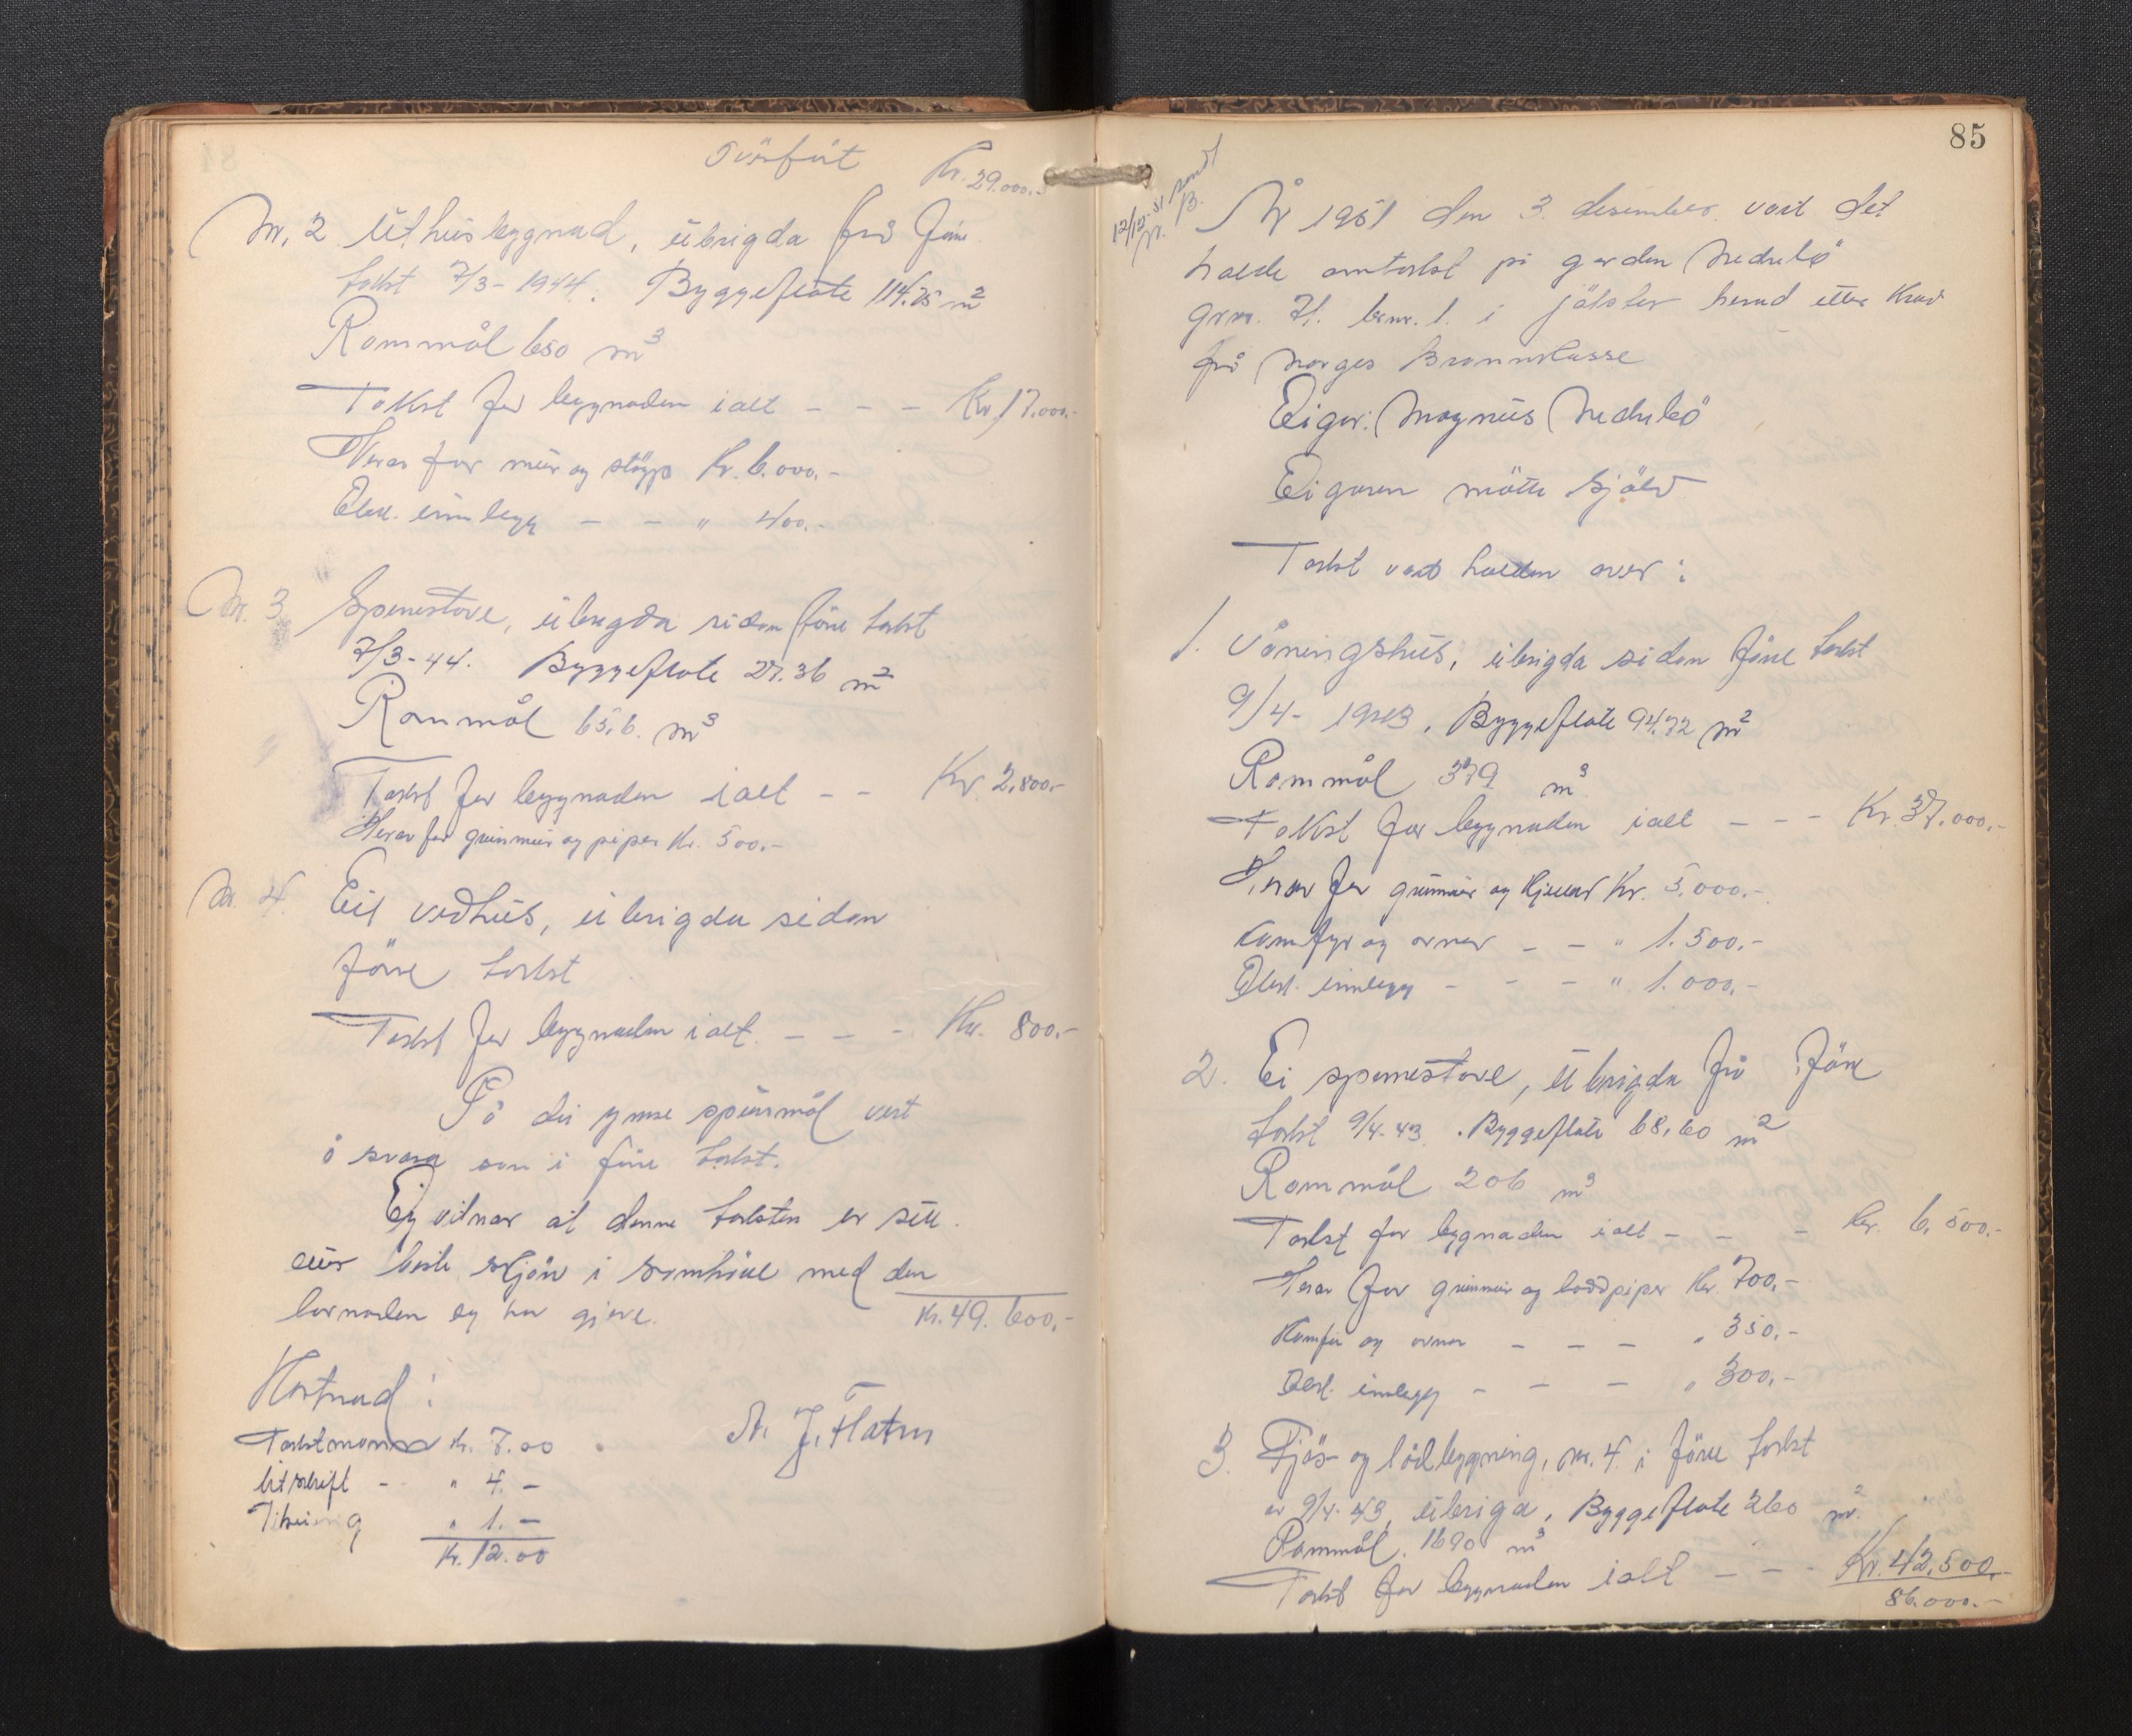 Överfört Kr. 29.000.-
Nr. 2 Uthusbygnad, übrigda frå före
takst 7/3-1944. Byggeflate 114.75 m²
Rommål 650 m³
Takst for bygnaden ialt - - - Kr. 17.000.-
Herav for mur og støyp Kr. 6.000.-
Elek. innlegg - - " 400.-
Nr. 3 Spenestove, übrigda sidan före takst
7/3-44. Byggeflate 27.36 m²
Rommål 65,6. m³
Takst for bygnaden ialt - - Kr. 2,800.-
Herav for grunmur og piper Kr. 500.-
Nr. 4. Eit vedhus, übrigda sidan
före takst
Takst for bygnaden ialt. - - - Kr. 800.-
På dei ymse spursmål vert
å svara som i före takst.
Eg vitnar at denne taksten er sett
etter beste skjön i samhöve med den
lovnaden eg har gjeve. Kr. 49.600.-
Kostnad:
Takstmann Kr. 7.00
Utskrift - " 4. -
" 1. -
Kr. 12.00
A. J. Flaten
85
12/12-51 sendt
År 1951 den 3. desember vart det
halde omtakst på garden Nedrebö
grnr. 71. brnr. 1. i Jölster herad etter krav
frå Norges Brannkasse
Eigar: Magnus Nedrebö
Eigaren mötte sjölv
Takst vart halden over:
1. Våningshus, übrigda sidan före takst
9/4- 1943. Byggeflate 94.72 m²
Rommål 379 m³
Takst for bygnaden ialt - - - Kr. 37.000.-
Herav for grunmur og kjellar Kr. 5.000.-
Kamfyr og ovner - - " 1.500.-
Elek. innlegg - - - " 1.000.-
2. Ei spenestove, übrigda frå före
takst 9/4-43. Byggeflate 68,60 m²
Rommål 206 m³
Takst for bygnaden ialt - - - Kr. 6,500.-
Herav for grunmur og piper Kr. 700.-
Kamfyr og ovner - - - " 350.-
Elek. innlegg - - - " 300.-
3. Fjös- og löebygning, nr. 4. i före takst
av 9/4-43, übrigda, Byggeflate 260 m²
Rommål. 1690 m³
Takst for bygnaden ialt - - - Kr. 42,500.-
86.000.-